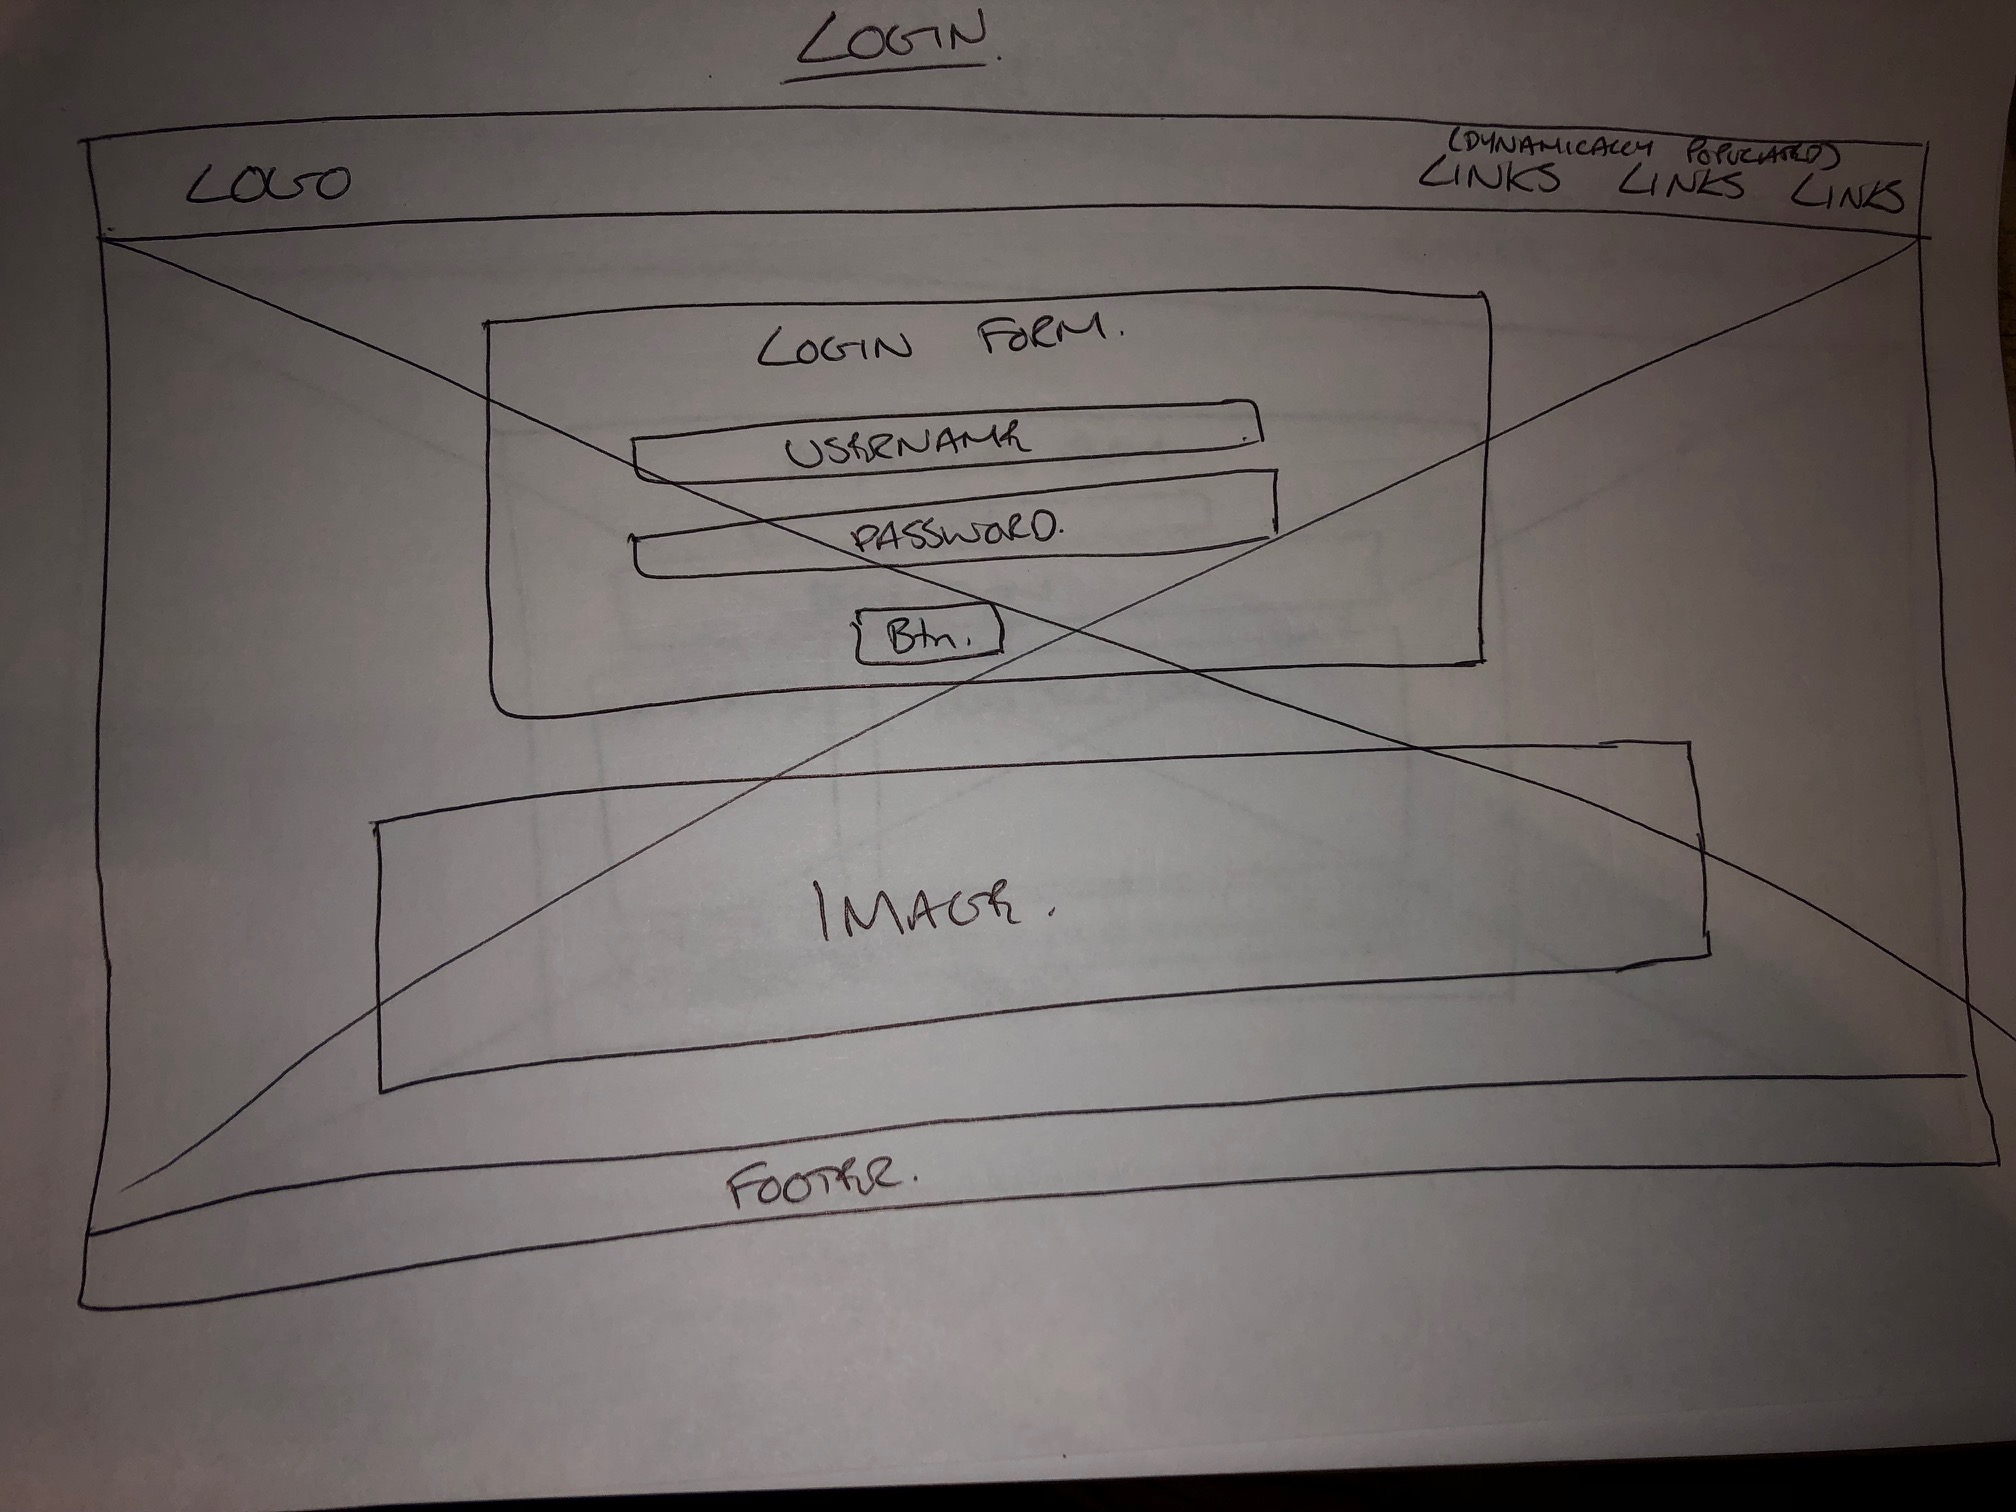 LOGIN.
LOGO
(DYNAMICALLY POPULATED)
LINKS LINKS LINKS
LOGIN FORM.
USERNAME
PASSWORD.
Btn.
IMAGE.
FOOTER.